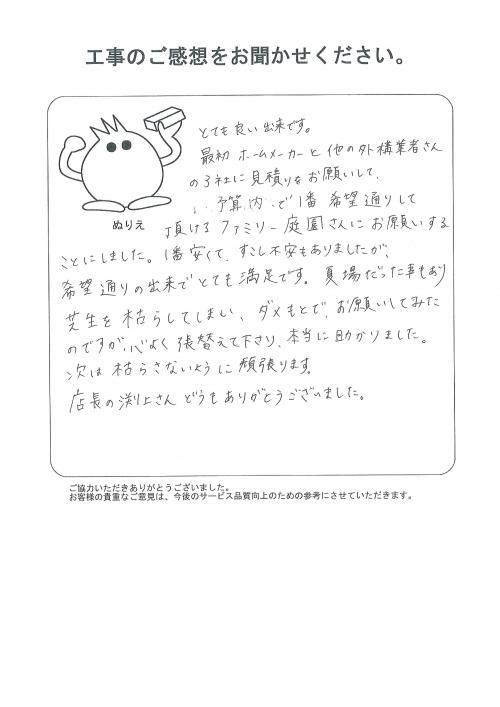 工事のご感想をお聞かせください。
とても良い出来です。
最初 ホームメーカーと他の外構業者さん
の3社に見積りをお願いして、
予算内で1番 希望通りして
ぬりえ
頂ける ファミリー庭園さんにお願いする
ことにしました。1番安くて、すこし不安もありましたが、
希望通りの出来でとても満足です。夏場だった事もあり
芝生を枯らしてしまい、ダメもとで、お願いしてみた
のですが、心よく張替えて下さり、本当に助かりました。
次は枯らさないように頑張ります。
店長の渕上さん どうもありがとうございました。
ご協力いただきありがとうございました。
お客様の貴重なご意見は、今後のサービス品質向上のための参考にさせていただきます。